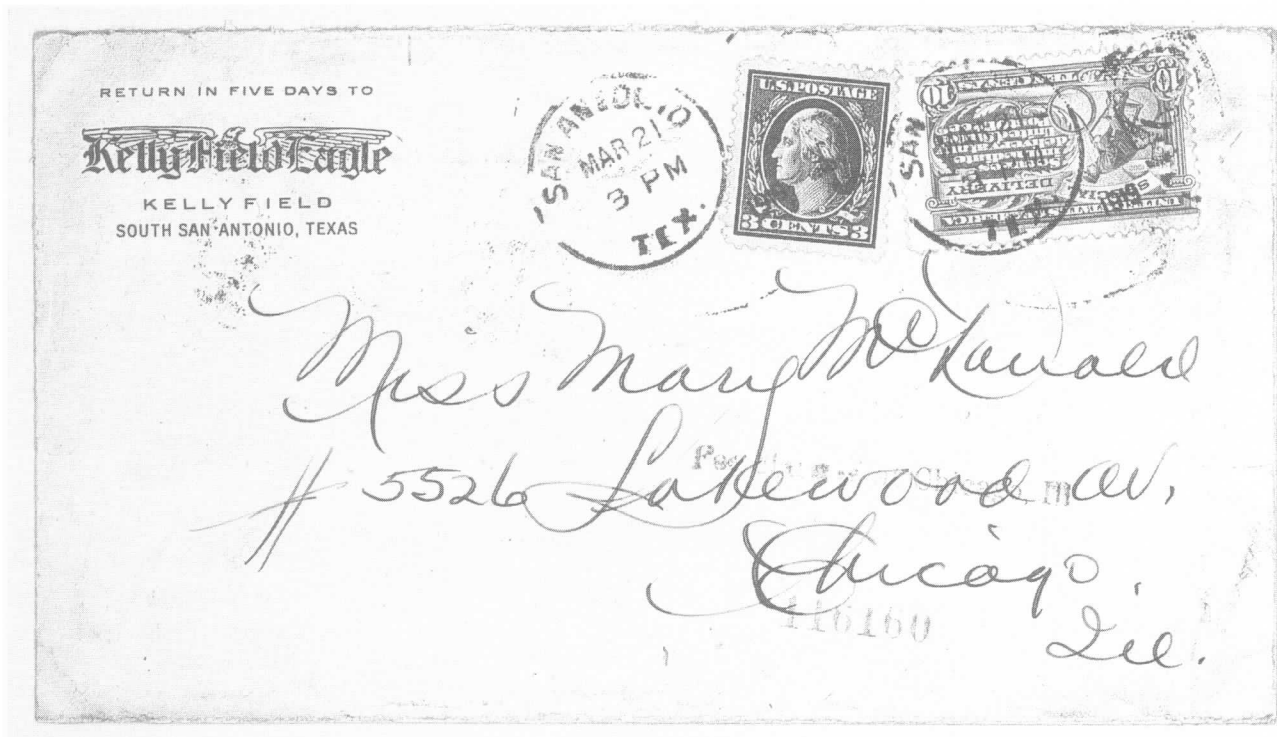 RETURN IN FIVE DAYS TO
Kelly Field Eagle
KELLY FIELD
SOUTH SAN ANTONIO, TEXAS
SAN ANTONIO
MAR 21
3 PM
TEX.
U.S. POSTAGE
3 CENTS 3
SAN
TEX
1919
10
10
DELIVERY
Miss Mary McDonald
# 5526 Lakewood Av,
Chicago, Ill
Chicago,
Ill.
116160